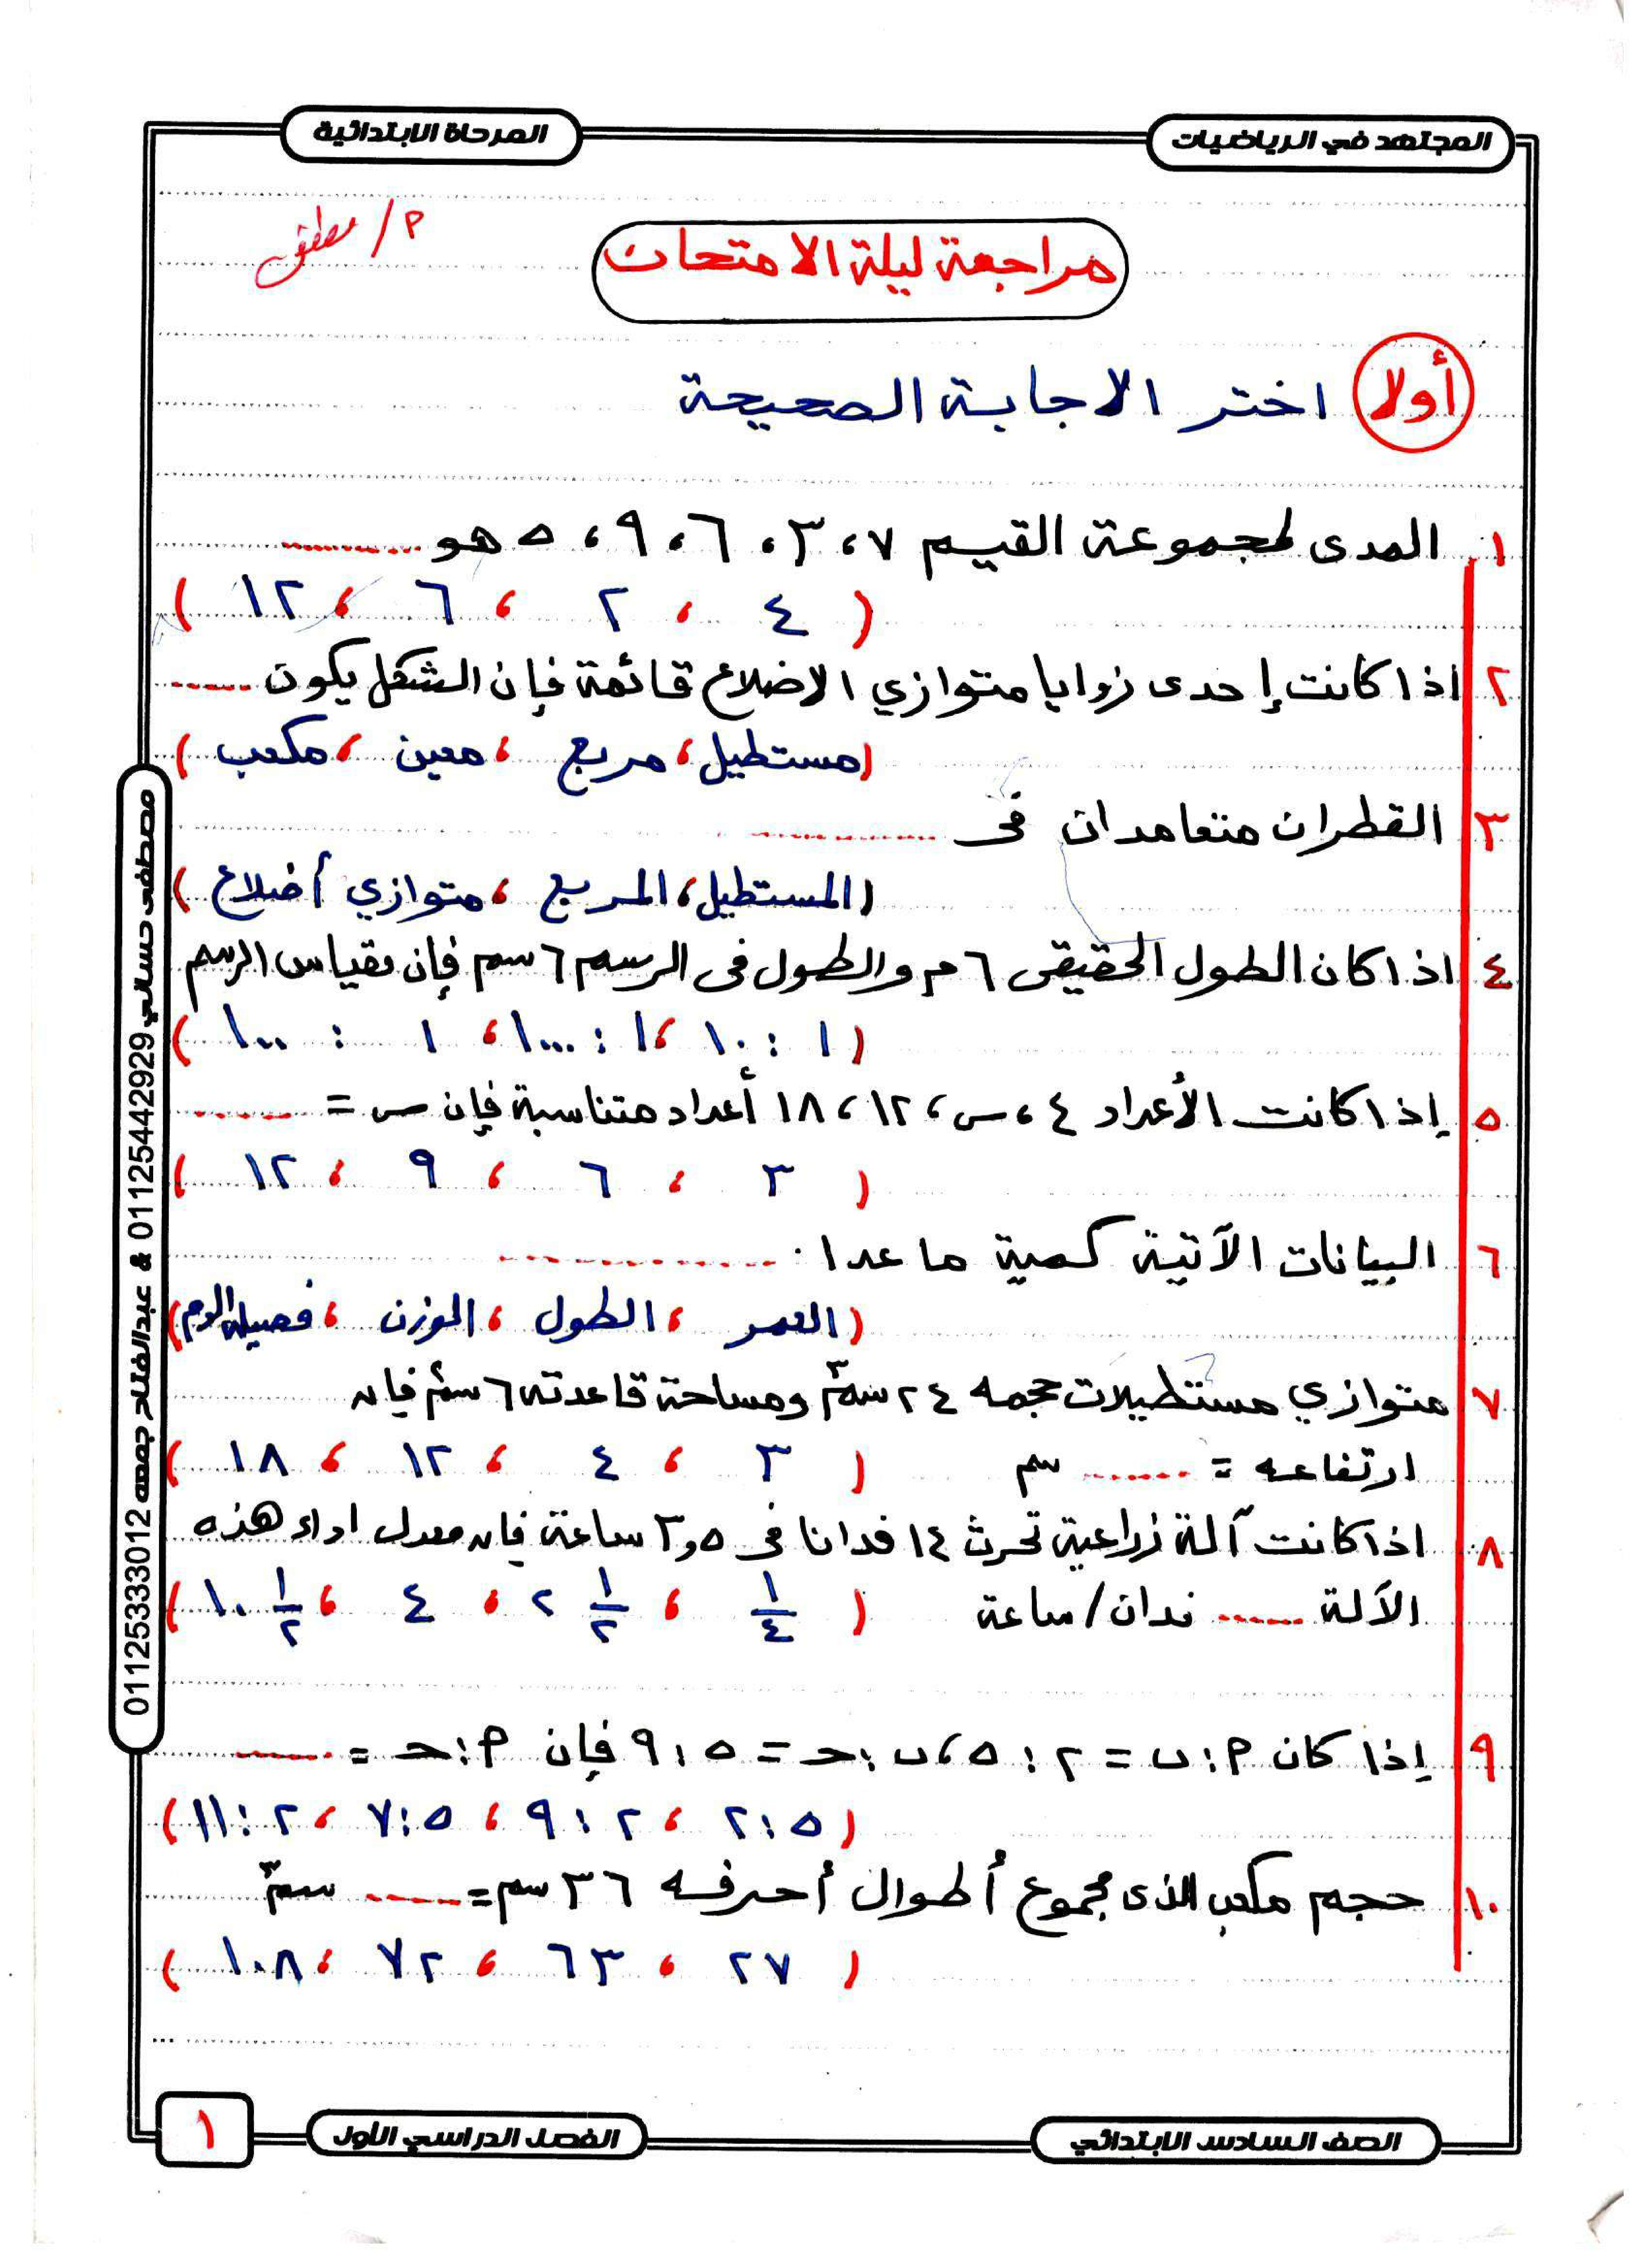 المجتهد في الرياضيات
المرحلة الابتدائية
م/ مصطفى
مراجعة ليلة الامتحان
أولا اختر الاجابة الصحيحة
١ المدى لمجموعة القيم ٧ ، ٣ ، ٦ ، ٩ ، ٥ هو ..........
( ٤ ، ٢ ، ٦ ، ١٢ )
٢ اذا كانت إحدى زوايا متوازي الاضلاع قائمة فإن الشكل يكون ......
( مستطيل ، مربع ، معين ، مكعب )
٣ القطران متعامدان فى ..............
( المستطيل ، المربع ، متوازي أضلاع )
٤ اذا كان الطول الحقيقى ٦ م والطول فى الرسم ٦ سم فإن مقياس الرسم
( ١ : ١٠ ، ١ : ١٠٠٠ ، ١ : ١٠٠ )
٥ إذا كانت الأعداد ٤ ، س ، ١٢ ، ١٨ أعداد متناسبة فإن س = ........
( ٣ ، ٦ ، ٩ ، ١٢ )
٦ البيانات الآتية كمية ما عدا ..............
( العمر ، الطول ، الوزن ، فصيلة الدم )
٧ متوازي مستطيلات حجمه ٢٤ سم٣ ومساحة قاعدته ٦ سم٢ فإن
ارتفاعه = ........ سم ( ٣ ، ٤ ، ١٢ ، ١٨ )
٨ اذا كانت آلة زراعية تحرث ١٤ فدانا فى ٣,٥ ساعة فإن معدل اداء هذه
الآلة ...... فدان/ساعة ( ١/٤ ، ٢ ١/٢ ، ٤ ، ١٠ ١/٢ )
٩ إذا كان P : ب = ٢ : ٥ ، ب : حـ = ٥ : ٩ فإن P : حـ = ......
( ٥ : ٢ ، ٢ : ٩ ، ٥ : ٧ ، ٢ : ١١ )
١٠ حجم مكعب الذى مجموع أطوال أحرفه ٣٦ سم = ...... سم٣
( ٢٧ ، ٦٣ ، ٧٢ ، ١٠٨ )
مصطفى حساني 01125442929 & عبدالفتاح جمعه 01125333012
الصف السادس الابتدائي
الفصل الدراسي الأول
١